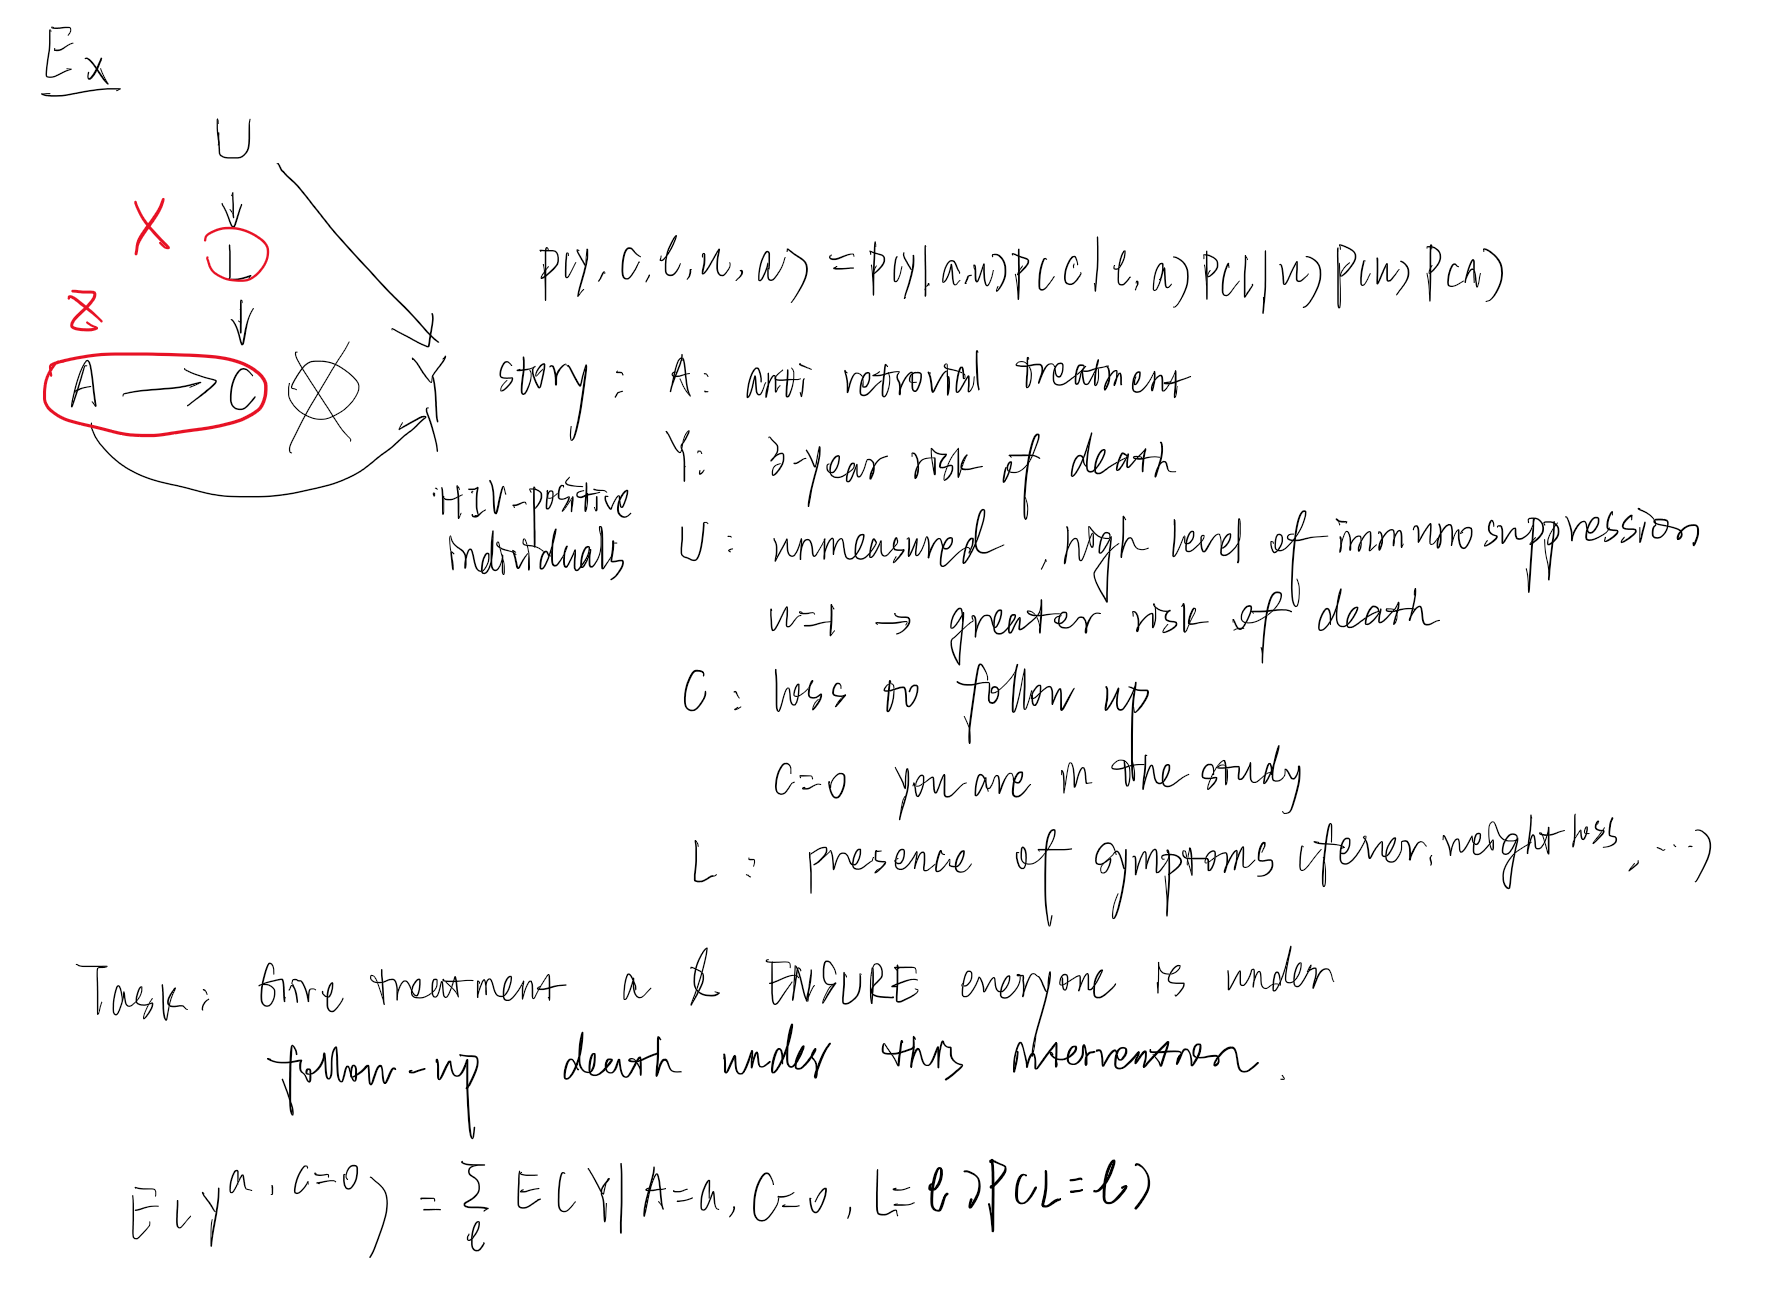 Ex
U
X
L
Z
A → C
Y
p(y, c, l, u, a) = p(y|a,u) p(c|l, a) p(l|u) p(u) p(A)
story : A: anti retrovial treatment
Y: 3-year risk of death
HIV-positive
individuals
U : unmeasured, high level of immunosuppression
u=1 → greater risk of death
C : loss to follow up
C=0 you are in the study
L : presence of symptoms (fever, weight loss, ...)
Task: Give treatment a & ENSURE everyone is under
follow-up death under this intervention.
E(Y^{a, c=0}) = Σ_l E(Y| A=a, C=0, L=l) P(L=l)